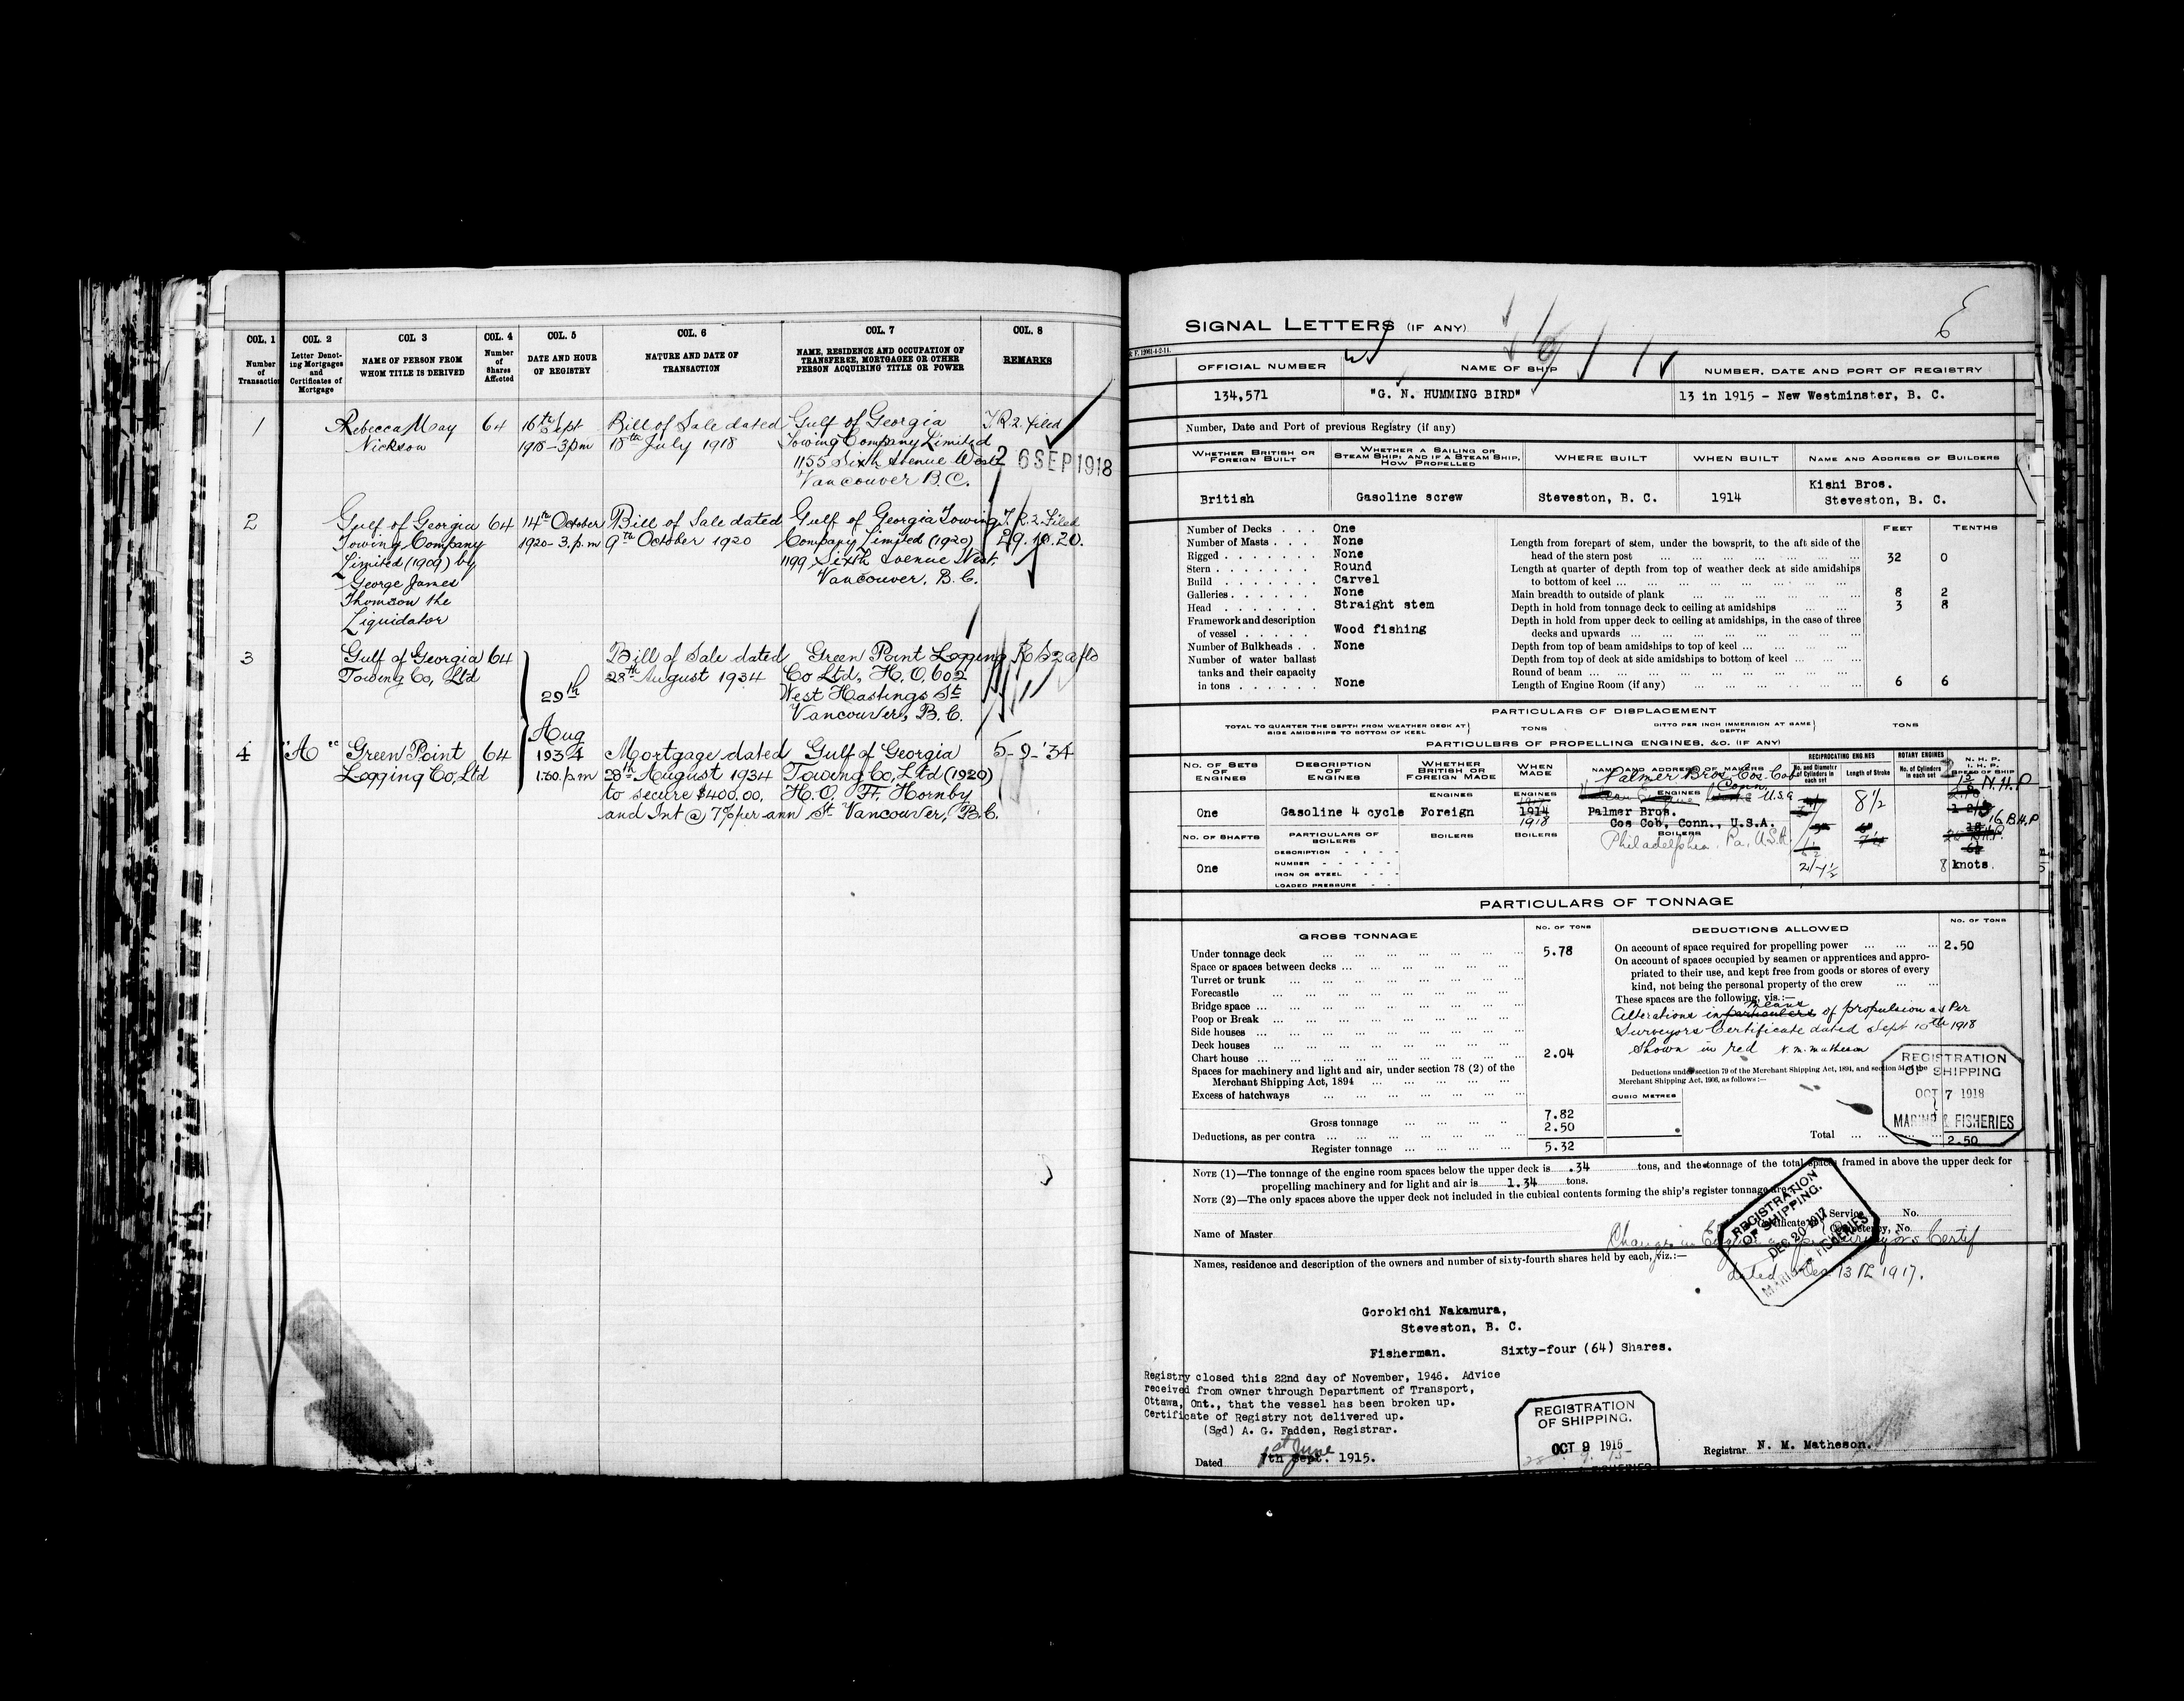 COL. 1
Number
of
Transaction
COL. 2
Letter Denot-
ing Mortgages
and
Certificates of
Mortgage
COL. 3
NAME OF PERSON FROM
WHOM TITLE IS DERIVED
COL. 4
Number
of
Shares
Affected
COL. 5
DATE AND HOUR
OF REGISTRY
COL. 6
NATURE AND DATE OF
TRANSACTION
COL. 7
NAME, RESIDENCE AND OCCUPATION OF
TRANSFEREE, MORTGAGEE OR OTHER
PERSON ACQUIRING TITLE OR POWER
COL. 8
REMARKS
1
Rebecca May
Nickson
64
16th Sept
1918-3pm
Bill of Sale dated
18th July 1918
Gulf of Georgia
Towing Company Limited
1155 Sixth Avenue West
Vancouver B.C.
T.R.2. filed
26 SEP 1918
2
Gulf of Georgia
Towing Company
Limited (1909) by
George James
Thomson the
Liquidator
64
14th October
1920-3.p.m
Bill of Sale dated
9th October 1920
Gulf of Georgia Towing
Company Limited (1920)
1199 Sixth Avenue West,
Vancouver, B.C.
T.R.2. Filed
29.10.20.
3
Gulf of Georgia
Towing Co, Ltd
64
29th
Aug
1934
1:30.p.m
Bill of Sale dated
28th August 1934
Green Point Logging
Co Ltd, H.O. 602
West Hastings St
Vancouver, B.C.
4
"A"
Green Point
Logging Co, Ltd
64
Mortgage dated
28th August 1934
to secure $400.00.
and Int @ 7% per ann
Gulf of Georgia
Towing Co, Ltd (1920)
H.O. Ft. Hornby
St Vancouver, B.C.
5-9-'34
SIGNAL LETTERS (IF ANY)
OFFICIAL NUMBER
NAME OF SHIP
NUMBER, DATE AND PORT OF REGISTRY
134,571
"G. N. HUMMING BIRD"
13 in 1915 - New Westminster, B. C.
Number, Date and Port of previous Registry (if any)
WHETHER BRITISH OR
FOREIGN BUILT
WHETHER A SAILING OR
STEAM SHIP; AND IF A STEAM SHIP,
HOW PROPELLED
WHERE BUILT
WHEN BUILT
NAME AND ADDRESS OF BUILDERS
British
Gasoline screw
Steveston, B. C.
1914
Kishi Bros.
Steveston, B. C.
Number of Decks . . . One
Number of Masts . . . None
Rigged . . . . . . . None
Stern . . . . . . . . Round
Build . . . . . . . Carvel
Galleries . . . . . . None
Head . . . . . . . Straight stem
Framework and description
of vessel . . . . . Wood fishing
Number of Bulkheads . . None
Number of water ballast
tanks and their capacity
in tons . . . . . . None
FEET TENTHS
Length from forepart of stem, under the bowsprit, to the aft side of the
head of the stern post ... 32 0
Length at quarter of depth from top of weather deck at side amidships
to bottom of keel ...
Main breadth to outside of plank ... 8 2
Depth in hold from tonnage deck to ceiling at amidships ... 3 8
Depth in hold from upper deck to ceiling at amidships, in the case of three
decks and upwards ...
Depth from top of beam amidships to top of keel ...
Depth from top of deck at side amidships to bottom of keel ...
Round of beam ...
Length of Engine Room (if any) ... 6 6
PARTICULARS OF DISPLACEMENT
TOTAL TO QUARTER THE DEPTH FROM WEATHER DECK AT
SIDE AMIDSHIPS TO BOTTOM OF KEEL
TONS
DITTO PER INCH IMMERSION AT SAME
DEPTH
TONS
PARTICULBRS OF PROPELLING ENGINES, &C. (IF ANY)
NO. OF SETS
OF
ENGINES
DESCRIPTION
OF
ENGINES
WHETHER
BRITISH OR
FOREIGN MADE
WHEN
MADE
NAME AND ADDRESS OF MAKERS
RECIPROCATING ENGINES
No. and Diameter
of Cylinders in
each set
Length of Stroke
ROTARY ENGINES
No. of Cylinders
in each set
N. H. P.
I. H. P.
SPEED OF SHIP
Palmer Bros, Cos Cob
Conn. U.S.A
8½
N.H.P
16 B.H.P
One
Gasoline 4 cycle
ENGINES
Foreign
ENGINES
1914
1918
Palmer Bros.
Cos Cob, Conn., U.S.A.
Philadelphia. Pa, U.S.A.
NO. OF SHAFTS
PARTICULARS OF
BOILERS
BOILERS
BOILERS
BOILERS
One
DESCRIPTION
NUMBER
IRON OR STEEL
LOADED PRESSURE
8 knots.
PARTICULARS OF TONNAGE
GROSS TONNAGE
NO. OF TONS
Under tonnage deck ... 5.78
Space or spaces between decks ...
Turret or trunk ...
Forecastle ...
Bridge space ...
Poop or Break ...
Side houses ...
Deck houses ...
Chart house ... 2.04
Spaces for machinery and light and air, under section 78 (2) of the
Merchant Shipping Act, 1894 ...
Excess of hatchways ...
Gross tonnage ... 7.82
Deductions, as per contra ... 2.50
Register tonnage ... 5.32
DEDUCTIONS ALLOWED
NO. OF TONS
On account of space required for propelling power ... 2.50
On account of spaces occupied by seamen or apprentices and appro-
priated to their use, and kept free from goods or stores of every
kind, not being the personal property of the crew ...
These spaces are the following, vis.:—
Alterations in particulars means of propulsion as Per
Surveyors Certificate dated Sept 10th 1918
Shown in red N. M. Matheson
Deductions under section 79 of the Merchant Shipping Act, 1894, and section 54 of the
Merchant Shipping Act, 1906, as follows:—
CUBIC METRES
REGISTRATION
OF SHIPPING
OCT 7 1918
MARINE & FISHERIES
Total ... 2.50
NOTE (1)—The tonnage of the engine room spaces below the upper deck is .34 tons, and the tonnage of the total spaces framed in above the upper deck for
propelling machinery and for light and air is 1.34 tons.
NOTE (2)—The only spaces above the upper deck not included in the cubical contents forming the ship's register tonnage are:—
REGISTRATION
OF SHIPPING.
DEC 20 1917
MARINE & FISHERIES
Certificate of Service No.
Competency, No.
Name of Master
Change in Surveyors Certif
dated Dec 13th 1917.
Names, residence and description of the owners and number of sixty-fourth shares held by each, viz.:—
Gorokichi Nakamura,
Steveston, B. C.
Fisherman. Sixty-four (64) Shares.
Registry closed this 22nd day of November, 1946. Advice
received from owner through Department of Transport,
Ottawa, Ont., that the vessel has been broken up.
Certificate of Registry not delivered up.
(Sgd) A. G. Fadden, Registrar.
REGISTRATION
OF SHIPPING.
OCT 9 1915
Dated 1st June 7th Sept. 1915.
Registrar N. M. Matheson.